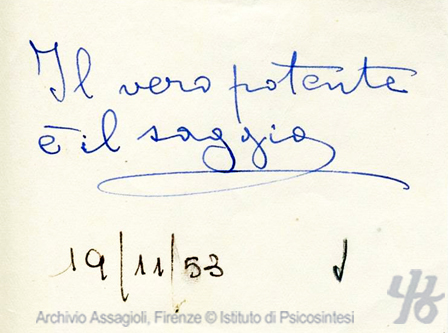 Il vero potente
è il saggio
19/11/53
Archivio Assagioli, Firenze © Istituto di Psicosintesi